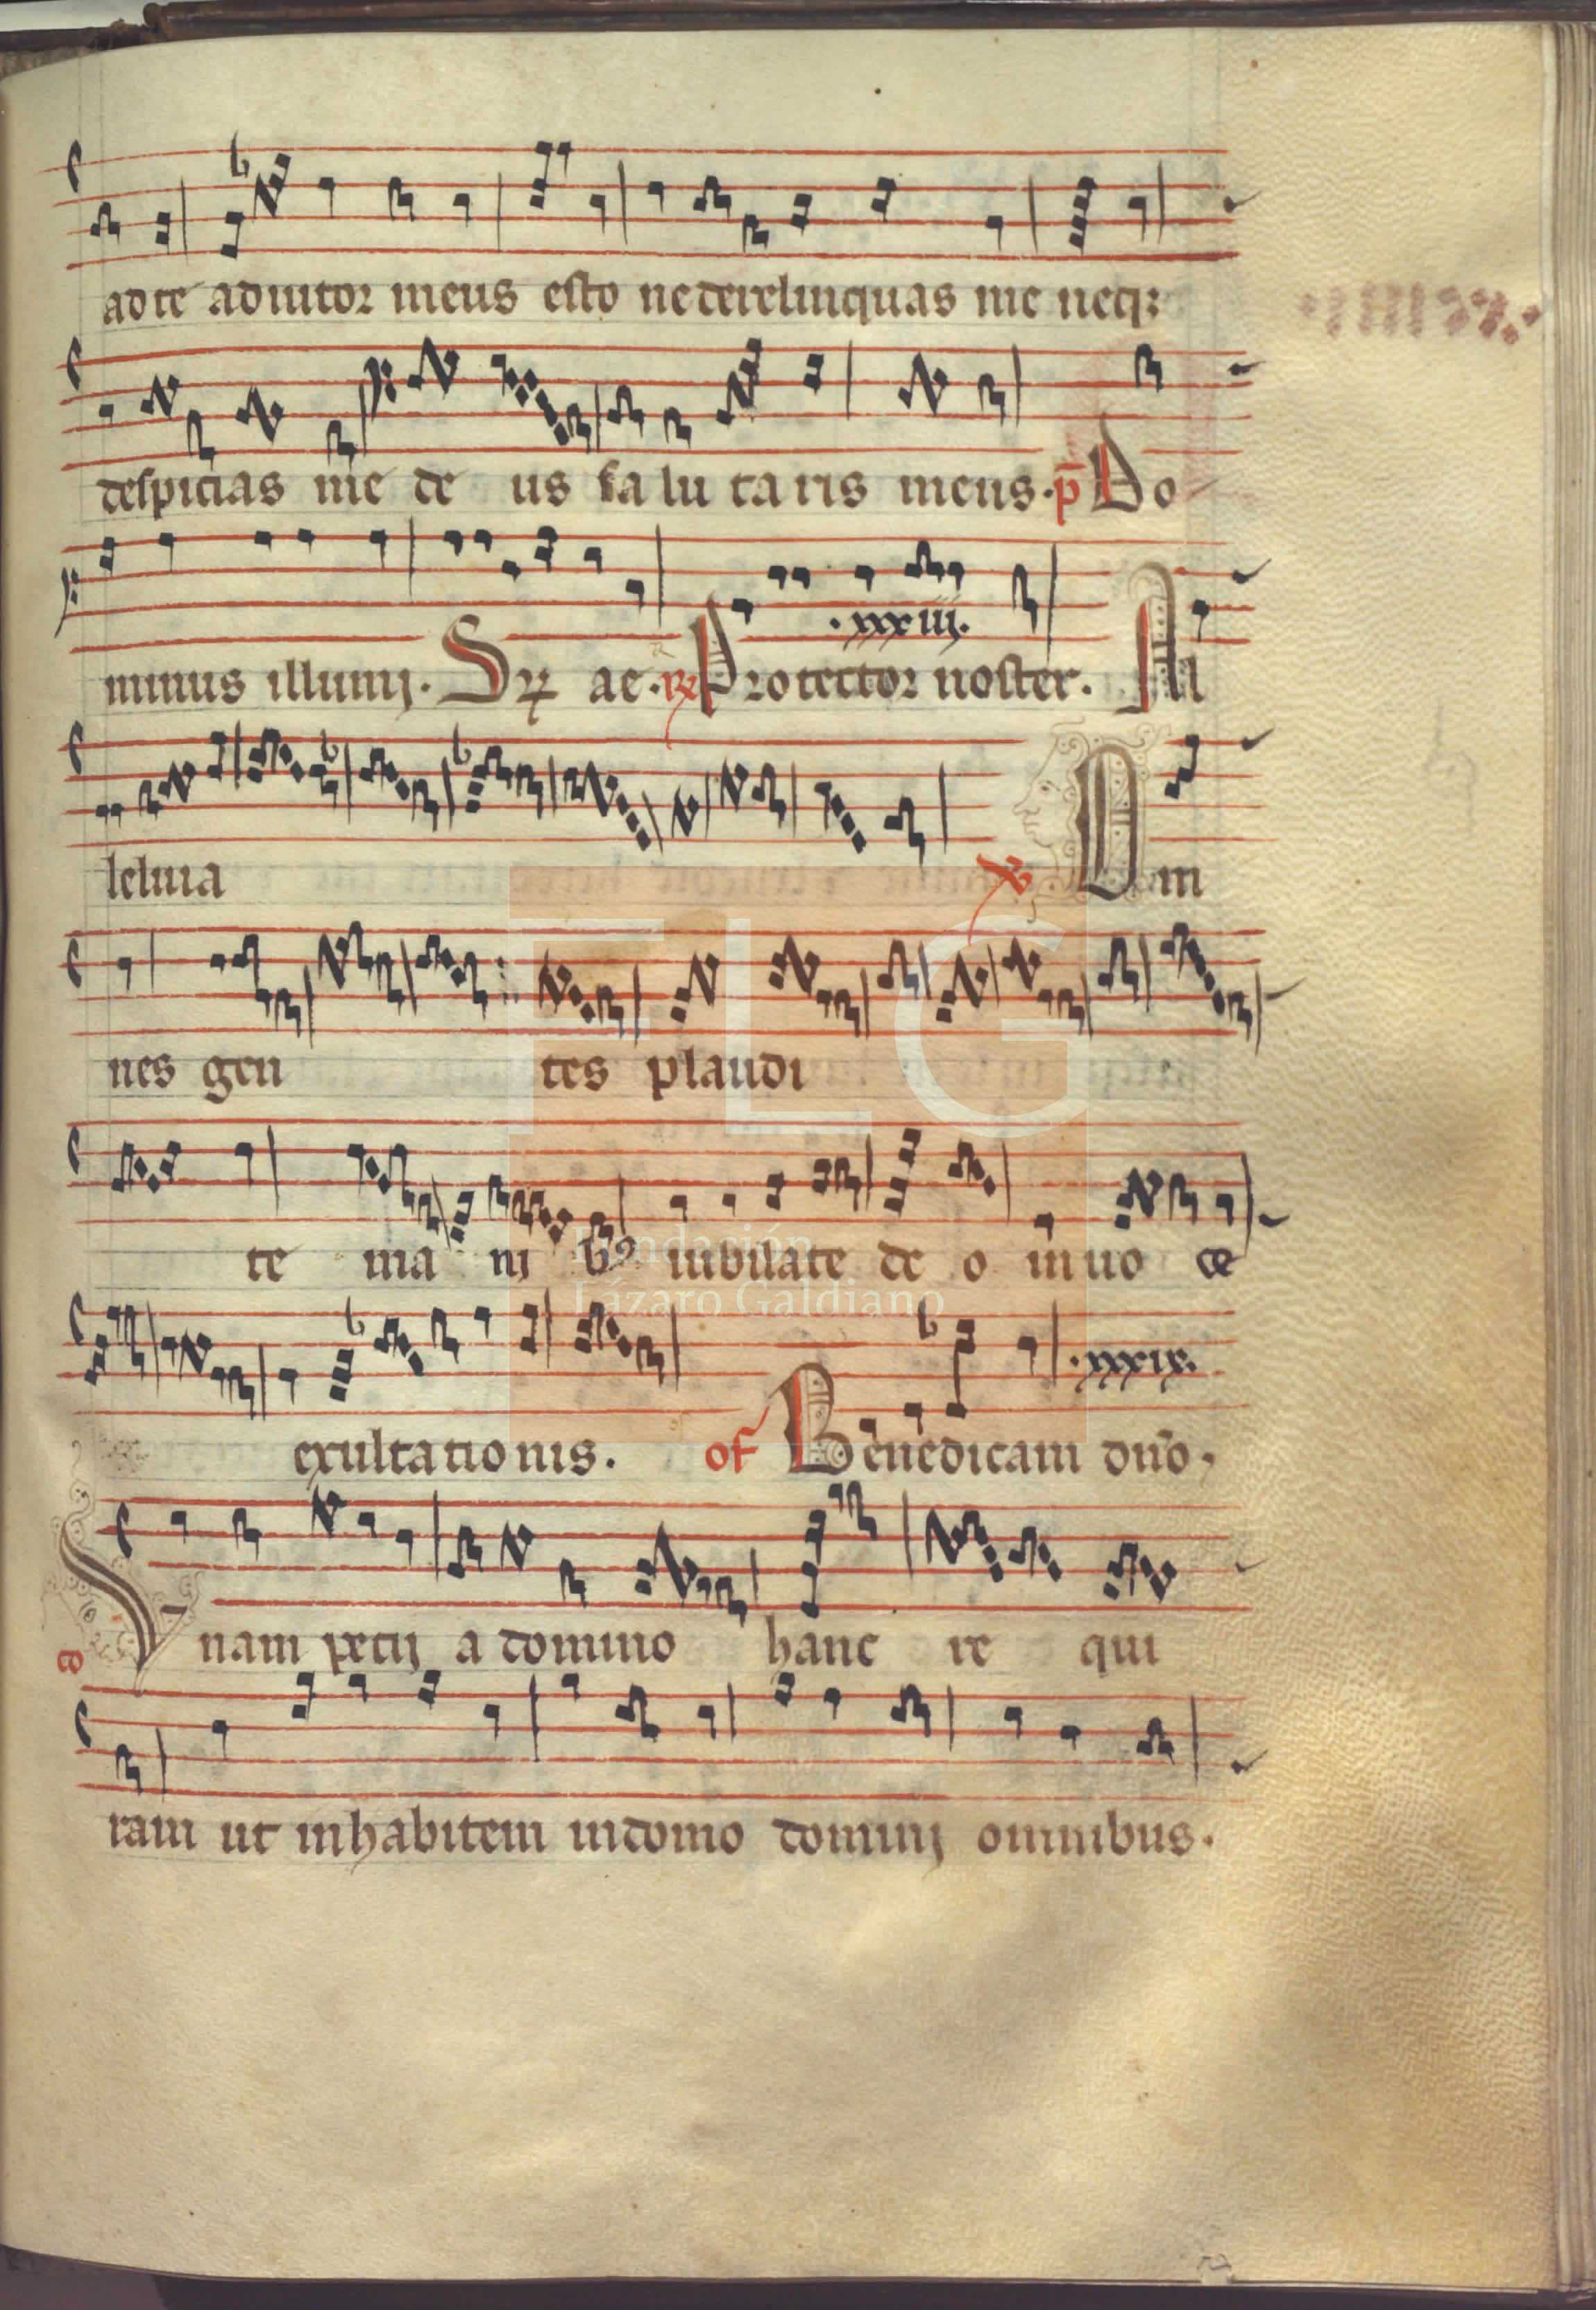 ad te adiutor meus esto ne derelinquas me neq;
despicias me de us salu ta ris meus. p̄ Do
minus illumij. S ae. R Protector noster. Al
.xxxiij.
leluia V Om
nes gen tes plaudi
te ma ni b9 iubilate de o in uo ce
.xxxix.
exultationis. of Benedicam dn̄o.
co Vnam petij a domino hanc re qui
ram ut inhabitem in domo dominj omnibus.
FLG
Fundación
Lázaro Galdiano